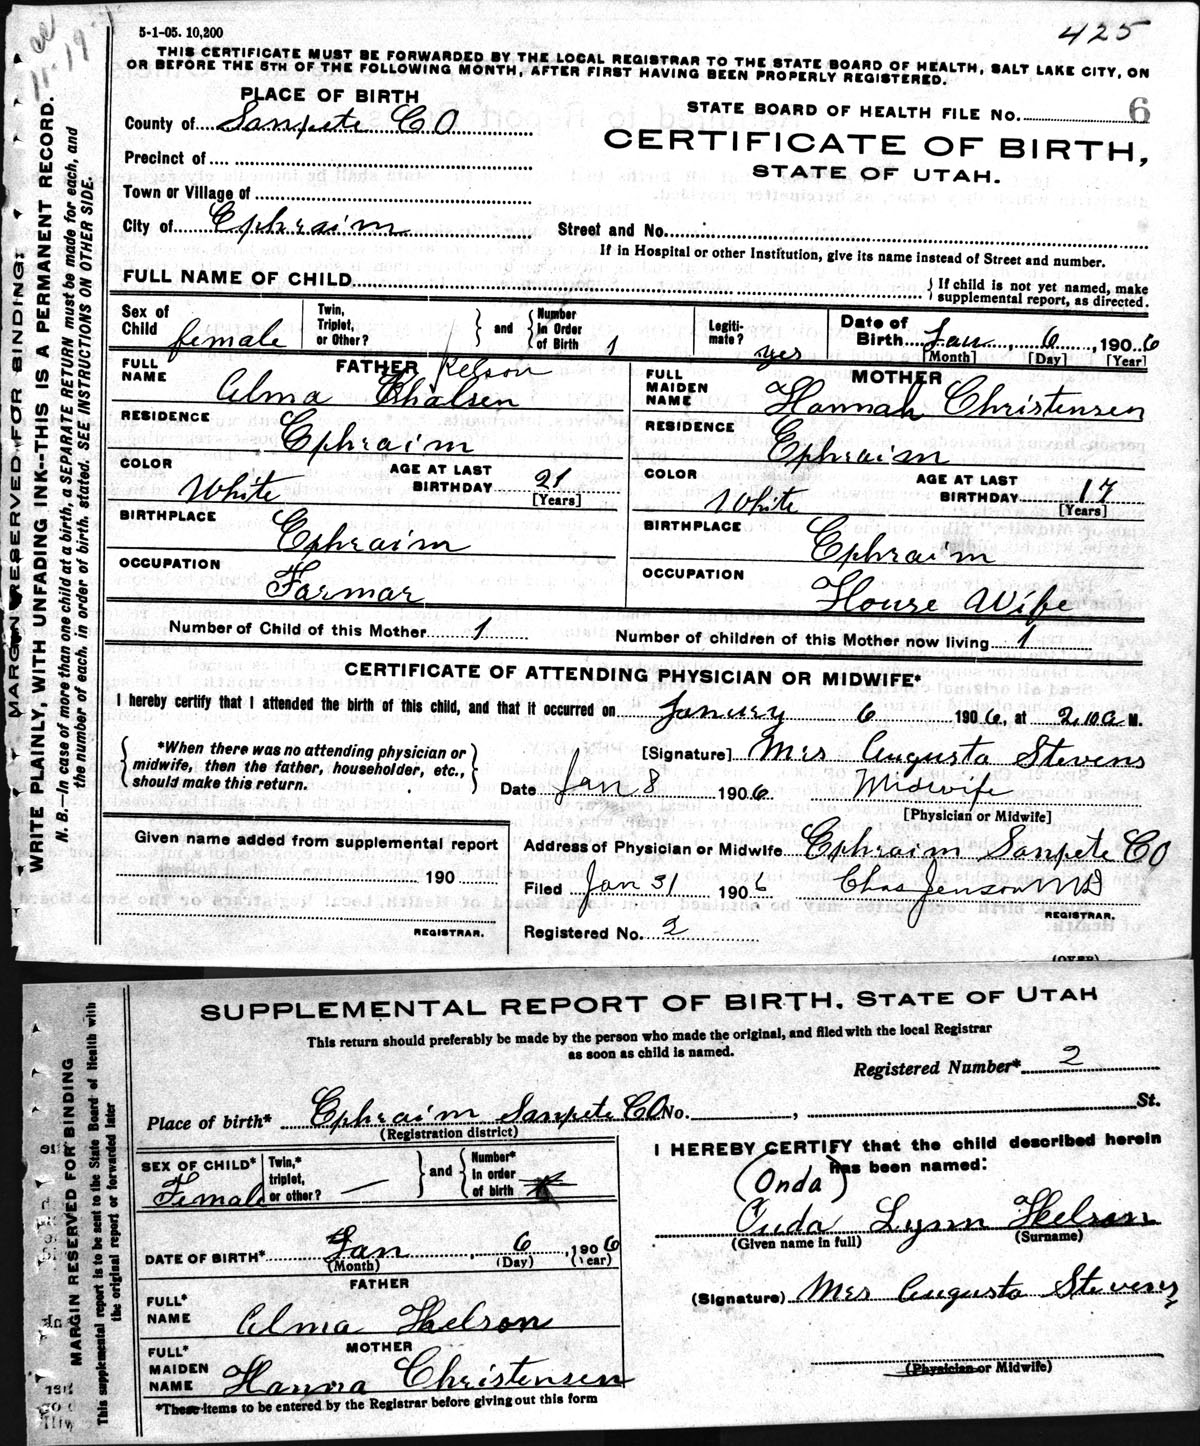 5-1-05. 10,200
425
THIS CERTIFICATE MUST BE FORWARDED BY THE LOCAL REGISTRAR TO THE STATE BOARD OF HEALTH, SALT LAKE CITY, ON
OR BEFORE THE 5TH OF THE FOLLOWING MONTH, AFTER FIRST HAVING BEEN PROPERLY REGISTERED.
MARGIN RESERVED FOR BINDING:
WRITE PLAINLY, WITH UNFADING INK--THIS IS A PERMANENT RECORD.
N. B.—In case of more than one child at a birth, a SEPARATE RETURN must be made for each, and
the number of each, in order of birth, stated. SEE INSTRUCTIONS ON OTHER SIDE.
PLACE OF BIRTH
County of Sanpete CO
Precinct of
Town or Village of
City of Ephraim
STATE BOARD OF HEALTH FILE No. 6
CERTIFICATE OF BIRTH,
STATE OF UTAH.
Street and No.
If in Hospital or other Institution, give its name instead of Street and number.
FULL NAME OF CHILD
If child is not yet named, make
supplemental report, as directed.
Sex of Child female
Twin, Triplet, or Other?
and
Number in Order of Birth 1
Legiti-mate? yes
Date of Birth Jan 6, 1906
[Month] [Day] [Year]
FATHER
FULL NAME Alma Khalsen Kelson
RESIDENCE Ephraim
COLOR White
AGE AT LAST BIRTHDAY 21
[Years]
BIRTHPLACE Ephraim
OCCUPATION Farmar
MOTHER
FULL MAIDEN NAME Hannah Christensen
RESIDENCE Ephraim
COLOR White
AGE AT LAST BIRTHDAY 17
[Years]
BIRTHPLACE Ephraim
OCCUPATION House Wife
Number of Child of this Mother 1
Number of children of this Mother now living 1
CERTIFICATE OF ATTENDING PHYSICIAN OR MIDWIFE*
I hereby certify that I attended the birth of this child, and that it occurred on January 6 1906, at 2.10 a M.
*When there was no attending physician or
midwife, then the father, householder, etc.,
should make this return.
[Signature] Mrs Augusta Stevens
Date Jan 8 1906 Midwife
[Physician or Midwife]
Given name added from supplemental report
190
REGISTRAR.
Address of Physician or Midwife Ephraim Sanpete CO
Filed Jan 31 1906 Chas Jenson MD
REGISTRAR.
Registered No. 2
(OVER)
SUPPLEMENTAL REPORT OF BIRTH. STATE OF UTAH
This return should preferably be made by the person who made the original, and filed with the local Registrar
as soon as child is named.
Registered Number* 2
MARGIN RESERVED FOR BINDING
This supplemental report is to be sent to the State Board of Health with
the original report or forwarded later
Place of birth* Ephraim Sanpete CO No. , St.
(Registration district)
SEX OF CHILD* Female
Twin,* triplet, or other? —
and
Number* in order of birth
DATE OF BIRTH* Jan 6, 1906
(Month) (Day) (Year)
FATHER
FULL* NAME Alma Kelson
MOTHER
FULL* MAIDEN NAME Hanna Christensen
*These items to be entered by the Registrar before giving out this form
I HEREBY CERTIFY that the child described herein
has been named:
(Onda)
Lynn Kelson
(Given name in full) (Surname)
(Signature) Mrs Augusta Stevens
(Physician or Midwife)